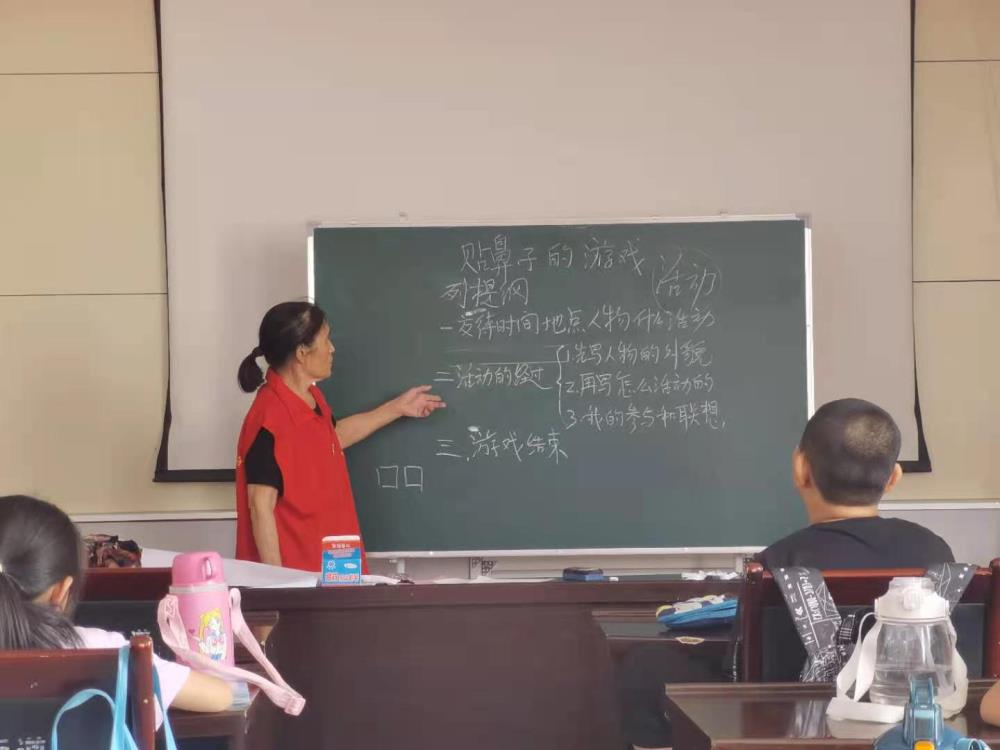 贴鼻子的游戏
活动
列提纲
一交待时间地点人物什么活动
二活动的经过
1.先写人物的外貌
2.再写怎么活动的
3.我的参与和联想,
三.游戏结束